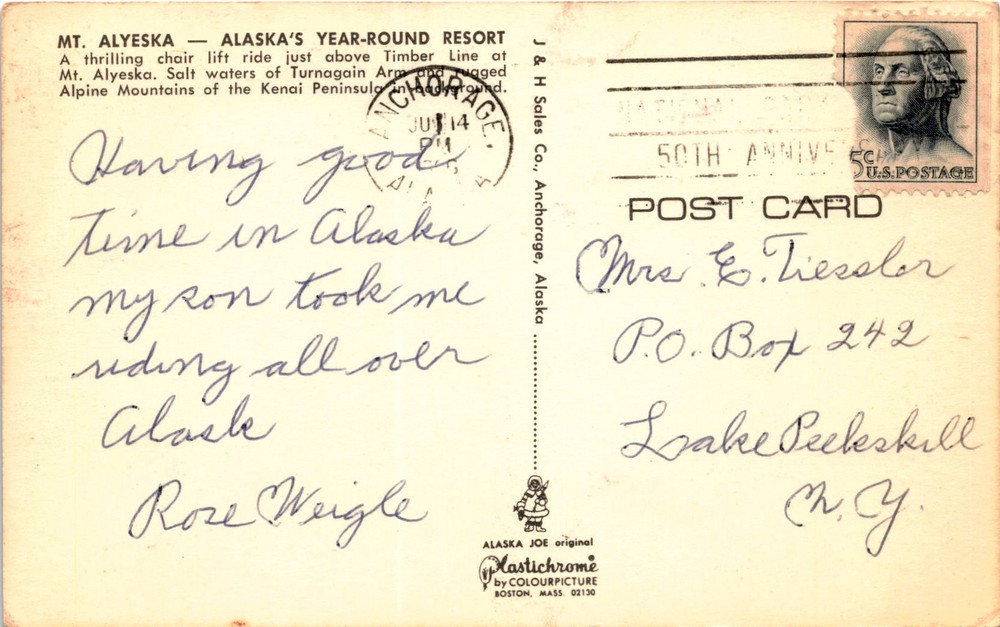 MT. ALYESKA — ALASKA'S YEAR-ROUND RESORT
A thrilling chair lift ride just above Timber Line at
Mt. Alyeska. Salt waters of Turnagain Arm and rugged
Alpine Mountains of the Kenai Peninsula in background.
Having good
time in Alaska
my son took me
riding all over
Alask
Rose Weigle
J & H Sales Co., Anchorage, Alaska
ALASKA JOE original
Plastichrome®
by COLOURPICTURE
BOSTON, MASS. 02130
ANCHORAGE,
JUN 14
PM
50TH ANNIVE
5c
U.S. POSTAGE
POST CARD
Mrs. E. Tiessler
P.O. Box 242
Lake Peekskill
N.Y.